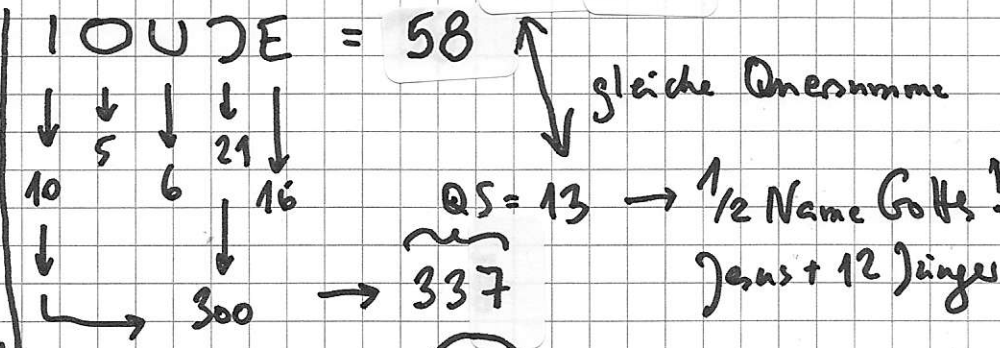 I O U Ɔ E = 58
gleiche Quersumme
5 21
10 6 16
QS = 13 → 1/2 Name Gottes!
Jesus + 12 Jünger
300 → 337